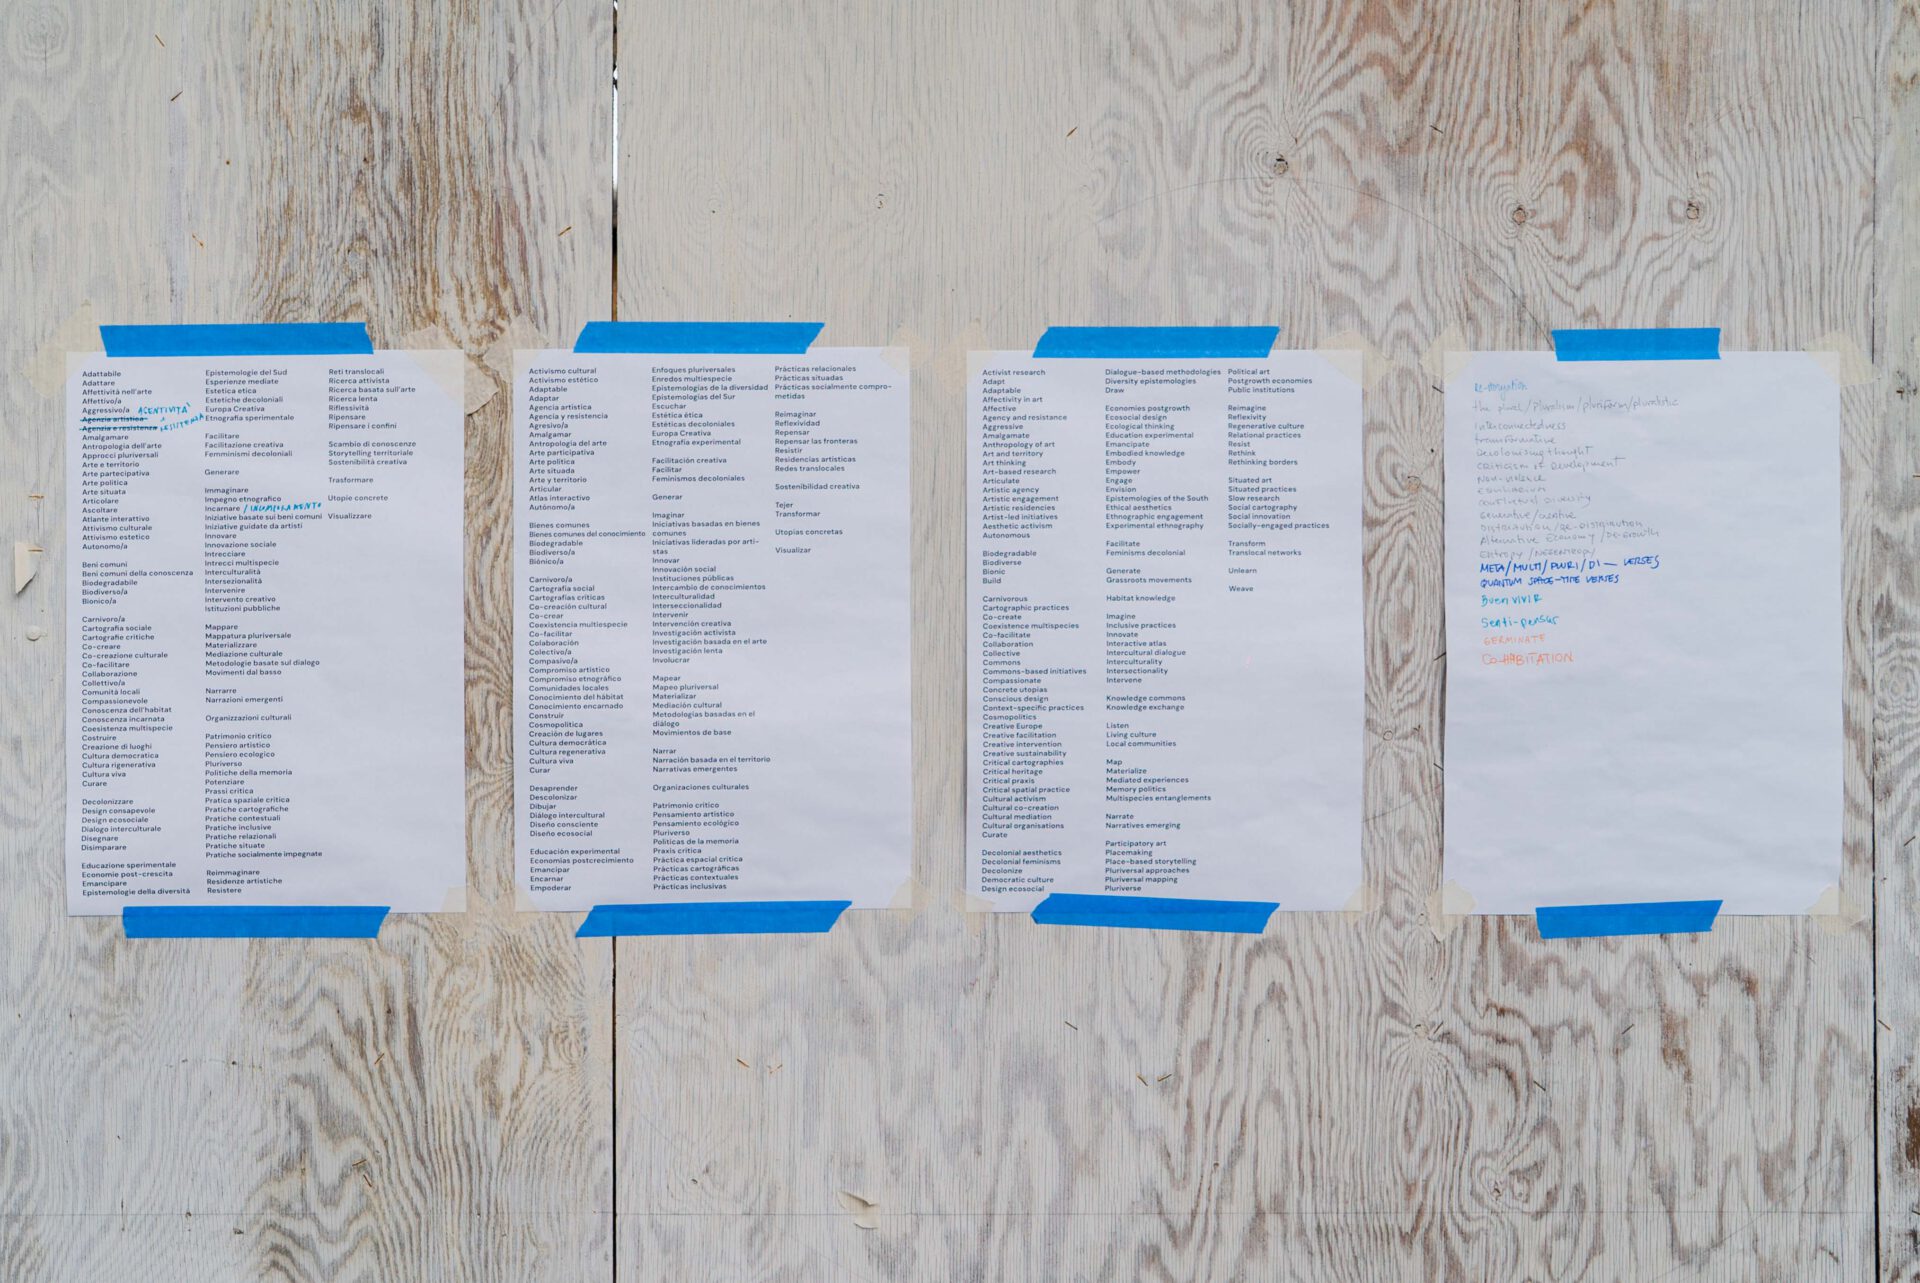 Adattabile
Adattare
Affettività nell'arte
Affettivo/a
Aggressivo/a ACENTIVITÀ
Agenzia artistica +
Agenzia e resistenza RESISTENZA
Amalgamare
Antropologia dell'arte
Approcci pluriversali
Arte e territorio
Arte partecipativa
Arte politica
Arte situata
Articolare
Ascoltare
Atlante interattivo
Attivismo culturale
Attivismo estetico
Autonomo/a
Beni comuni
Beni comuni della conoscenza
Biodegradabile
Biodiverso/a
Bionico/a
Carnivoro/a
Cartografia sociale
Cartografie critiche
Co-creare
Co-creazione culturale
Co-facilitare
Collaborazione
Collettivo/a
Comunità locali
Compassionevole
Conoscenza dell'habitat
Conoscenza incarnata
Coesistenza multispecie
Costruire
Creazione di luoghi
Cultura democratica
Cultura rigenerativa
Cultura viva
Curare
Decolonizzare
Design consapevole
Design ecosociale
Dialogo interculturale
Disegnare
Disimparare
Educazione sperimentale
Economie post-crescita
Emancipare
Epistemologie della diversità
Epistemologie del Sud
Esperienze mediate
Estetica etica
Estetiche decoloniali
Europa Creativa
Etnografia sperimentale
Facilitare
Facilitazione creativa
Femminismi decoloniali
Generare
Immaginare
Impegno etnografico
Incarnare / INCORPORAMENTO
Iniziative basate sui beni comuni
Iniziative guidate da artisti
Innovare
Innovazione sociale
Intrecciare
Intrecci multispecie
Interculturalità
Intersezionalità
Intervenire
Intervento creativo
Istituzioni pubbliche
Mappare
Mappatura pluriversale
Materializzare
Mediazione culturale
Metodologie basate sul dialogo
Movimenti dal basso
Narrarre
Narrazioni emergenti
Organizzazioni culturali
Patrimonio critico
Pensiero artistico
Pensiero ecologico
Pluriverso
Politiche della memoria
Potenziare
Prassi critica
Pratica spaziale critica
Pratiche cartografiche
Pratiche contestuali
Pratiche inclusive
Pratiche relazionali
Pratiche situate
Pratiche socialmente impegnate
Reimmaginare
Residenze artistiche
Resistere
Reti translocali
Ricerca attivista
Ricerca basata sull'arte
Ricerca lenta
Riflessività
Ripensare
Ripensare i confini
Scambio di conoscenze
Storytelling territoriale
Sostenibilità creativa
Trasformare
Utopie concrete
Visualizzare
Activismo cultural
Activismo estético
Adaptable
Adaptar
Agencia artística
Agencia y resistencia
Agresivo/a
Amalgamar
Antropología del arte
Arte participativa
Arte política
Arte situada
Arte y territorio
Articular
Atlas interactivo
Autónomo/a
Bienes comunes
Bienes comunes del conocimiento
Biodegradable
Biodiverso/a
Biónico/a
Carnívoro/a
Cartografía social
Cartografías críticas
Co-creación cultural
Co-crear
Coexistencia multiespecie
Co-facilitar
Colaboración
Colectivo/a
Compasivo/a
Compromiso artístico
Compromiso etnográfico
Comunidades locales
Conocimiento del hábitat
Conocimiento encarnado
Construir
Cosmopolítica
Creación de lugares
Cultura democrática
Cultura regenerativa
Cultura viva
Curar
Desaprender
Descolonizar
Dibujar
Diálogo intercultural
Diseño consciente
Diseño ecosocial
Educación experimental
Economías postcrecimiento
Emancipar
Encarnar
Empoderar
Enfoques pluriversales
Enredos multiespecie
Epistemologías de la diversidad
Epistemologías del Sur
Escuchar
Estética ética
Estéticas decoloniales
Europa Creativa
Etnografía experimental
Facilitación creativa
Facilitar
Feminismos decoloniales
Generar
Imaginar
Iniciativas basadas en bienes
comunes
Iniciativas lideradas por arti-
stas
Innovar
Innovación social
Instituciones públicas
Intercambio de conocimientos
Interculturalidad
Interseccionalidad
Intervenir
Intervención creativa
Investigación activista
Investigación basada en el arte
Investigación lenta
Involucrar
Mapear
Mapeo pluriversal
Materializar
Mediación cultural
Metodologías basadas en el
diálogo
Movimientos de base
Narrar
Narración basada en el territorio
Narrativas emergentes
Organizaciones culturales
Patrimonio crítico
Pensamiento artístico
Pensamiento ecológico
Pluriverso
Políticas de la memoria
Praxis crítica
Práctica espacial crítica
Prácticas cartográficas
Prácticas contextuales
Prácticas inclusivas
Prácticas relacionales
Prácticas situadas
Prácticas socialmente compro-
metidas
Reimaginar
Reflexividad
Repensar
Repensar las fronteras
Resistir
Residencias artísticas
Redes translocales
Sostenibilidad creativa
Tejer
Transformar
Utopías concretas
Visualizar
Activist research
Adapt
Adaptable
Affectivity in art
Affective
Agency and resistance
Aggressive
Amalgamate
Anthropology of art
Art and territory
Art thinking
Art-based research
Articulate
Artistic agency
Artistic engagement
Artistic residencies
Artist-led initiatives
Aesthetic activism
Autonomous
Biodegradable
Biodiverse
Bionic
Build
Carnivorous
Cartographic practices
Co-create
Coexistence multispecies
Co-facilitate
Collaboration
Collective
Commons
Commons-based initiatives
Compassionate
Concrete utopias
Conscious design
Context-specific practices
Cosmopolitics
Creative Europe
Creative facilitation
Creative intervention
Creative sustainability
Critical cartographies
Critical heritage
Critical praxis
Critical spatial practice
Cultural activism
Cultural co-creation
Cultural mediation
Cultural organisations
Curate
Decolonial aesthetics
Decolonial feminisms
Decolonize
Democratic culture
Design ecosocial
Dialogue-based methodologies
Diversity epistemologies
Draw
Economies postgrowth
Ecosocial design
Ecological thinking
Education experimental
Emancipate
Embodied knowledge
Embody
Empower
Engage
Envision
Epistemologies of the South
Ethical aesthetics
Ethnographic engagement
Experimental ethnography
Facilitate
Feminisms decolonial
Generate
Grassroots movements
Habitat knowledge
Imagine
Inclusive practices
Innovate
Interactive atlas
Intercultural dialogue
Interculturality
Intersectionality
Intervene
Knowledge commons
Knowledge exchange
Listen
Living culture
Local communities
Map
Materialize
Mediated experiences
Memory politics
Multispecies entanglements
Narrate
Narratives emerging
Participatory art
Placemaking
Place-based storytelling
Pluriversal approaches
Pluriversal mapping
Pluriverse
Political art
Postgrowth economies
Public institutions
Reimagine
Reflexivity
Regenerative culture
Relational practices
Resist
Rethink
Rethinking borders
Situated art
Situated practices
Slow research
Social cartography
Social innovation
Socially-engaged practices
Transform
Translocal networks
Unlearn
Weave
the plural/pluralism/pluriform/pluralistic
Interconnectedness
transformative
Decolonising thought
Criticism of Development
Non-violence
diversity
Generative/
Distribution/Re-distribution
Alternative Economy/De-Growth
Entropy/Negentropy
META/MULTI/PLURI/DI— VERSES
QUANTUM SPACE-TIME VERSES
Buen vivir
Senti-pensar
GERMINATE
CO-HABITATION